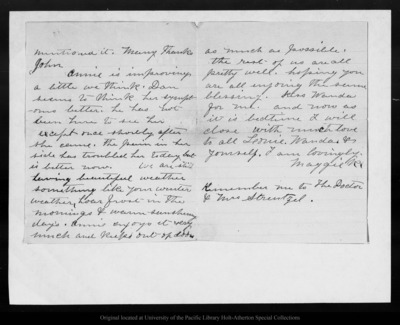 mentioned it. Many Thanks
John.
Annie is improving
a little we think. Dan
seems to think her sympt-
oms better. he has not
been here to see her
except once shortly after
she came. The pain in her
side has troubled her today but
is better now. We are
having beautiful weather
something like your winter
weather, hoar frost in the
mornings & warm sunshiny
days. Annie enjoys it very
much and keeps out of doors
as much as possible.
the rest of us are all
pretty well. hoping you
are all enjoying the same
blessing. Kiss Wanda
for me. and now as
it is bedtime I will
close with much love
to all Louie, Wanda &
yourself. I am lovingly
Maggie
Remember me to The Doctor
& Mrs Strentzel.
Original located at University of the Pacific Library Holt-Atherton Special Collections